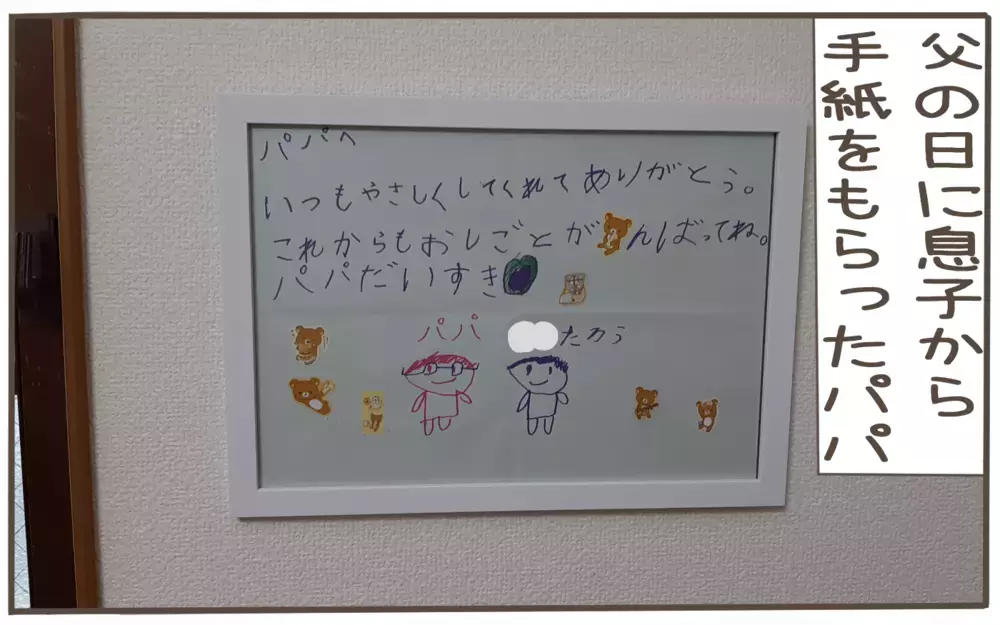 父の日に息子から
手紙をもらったパパ
パパへ
いつもやさしくしてくれてありがとう。
これからもおしごとがんばってね。
パパだいすき
パパ
たろう